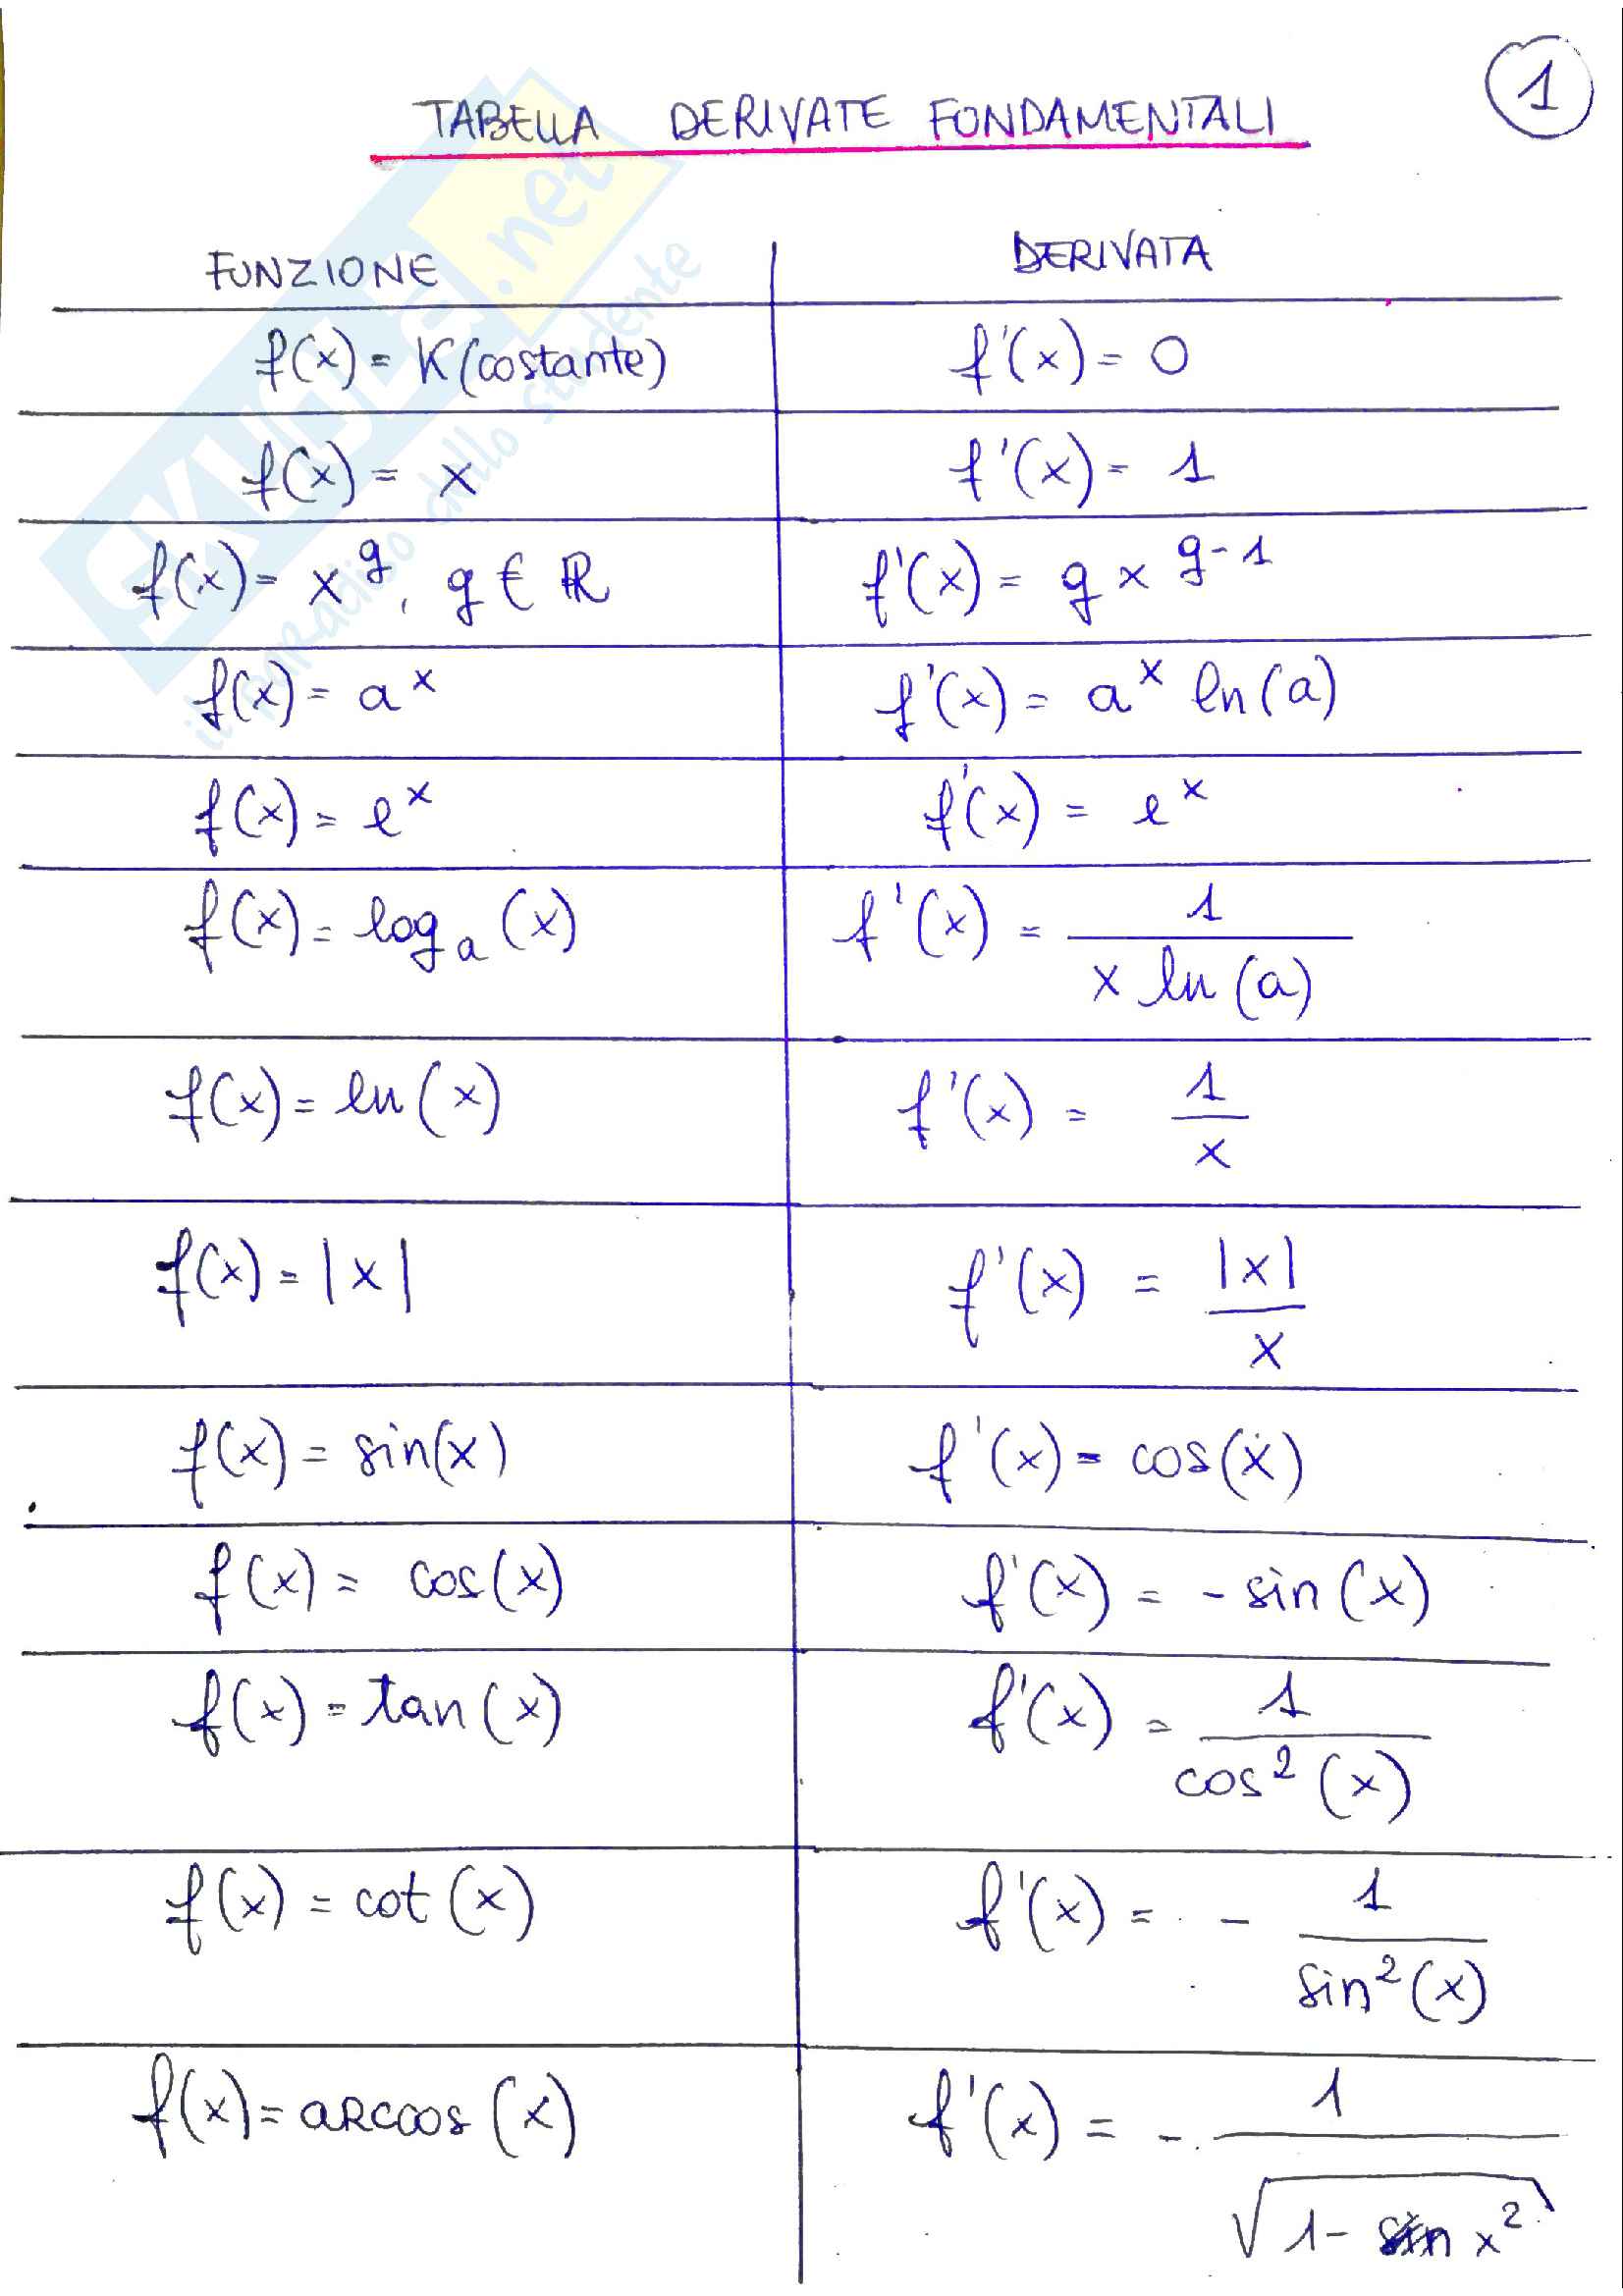 1
TABELLA DERIVATE FONDAMENTALI
FUNZIONE DERIVATA
f(x) = K (costante) f'(x) = 0
f(x) = x f'(x) = 1
f(x) = x^g, g ∈ ℝ f'(x) = g x^{g-1}
f(x) = a^x f'(x) = a^x ln(a)
f(x) = e^x f'(x) = e^x
f(x) = log_a (x) f'(x) = 1 / (x ln(a))
f(x) = ln(x) f'(x) = 1/x
f(x) = |x| f'(x) = |x|/x
f(x) = sin(x) f'(x) = cos(x)
f(x) = cos(x) f'(x) = - sin(x)
f(x) = tan(x) f'(x) = 1 / cos²(x)
f(x) = cot(x) f'(x) = - 1 / sin²(x)
f(x) = arccos(x) f'(x) = - 1 / √(1 - x²)
SKUOLA.net
il paradiso dello studente